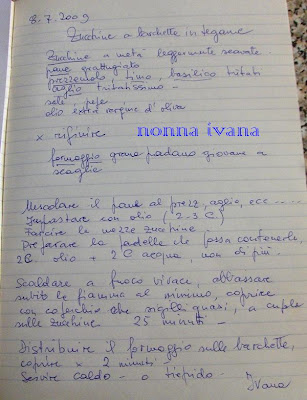 8.7.2009
Zucchine a barchette in tegame
Zucchine a metà leggermente scavate
pane grattugiato
prezzemolo, timo, basilico tritati
aglio tritatissimo -
sale, pepe
olio extra vergine d'oliva
x rifinire
nonna ivana
formaggio grana padano giovane a
scaglie
Mescolare il pane al prezz, aglio, ecc .....
Impastare con olio (2-3 C.)
Farcire le mezze zucchine
Preparare la padella che possa contenerle,
2C. olio + 2 C acqua, non di più.
Scaldare a fuoco vivace, abbassare
subito la fiamma al minimo, coprire
con coperchio che sigilli quasi, a cupola
sulle zucchine 25 minuti -
Distribuire il formaggio sulle barchette,
coprire x 2 minuti
Servire caldo - o tiepido -
Ivana